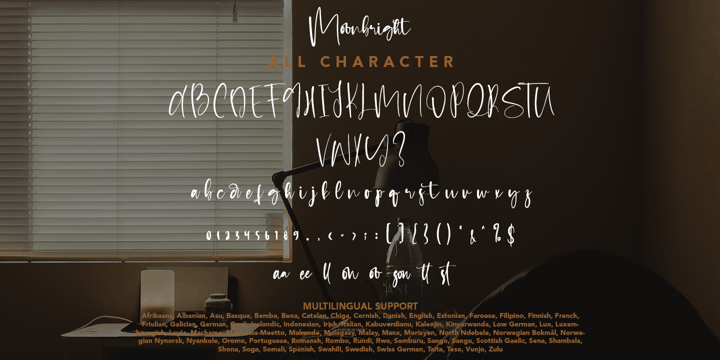 Moonbright
ALL CHARACTER
ABCDEFGHIJKLMNOPQRSTU
VWXYZ
abcdefghijklnopqrstuvwxyz
0123456789.,(-);:[]{}()'&"%$
aa ee ll on oo zon tt st
MULTILINGUAL SUPPORT
Afrikaans, Albanian, Asu, Basque, Bemba, Bena, Catalan, Chiga, Cornish, Danish, English, Estonian, Faroese, Filipino, Finnish, French,
Friulian, Galician, German, Gusii, Icelandic, Indonesian, Irish, Italian, Kabuverdianu, Kalenjin, Kinyarwanda, Low German, Luo, Luxem-
bourgish, Luyia, Machame, Makhuwa-Meetto, Makonde, Malagasy, Malay, Manx, Morisyen, North Ndebele, Norwegian Bokmål, Norwe-
gian Nynorsk, Nyankole, Oromo, Portuguese, Romansh, Rombo, Rundi, Rwa, Samburu, Sango, Sangu, Scottish Gaelic, Sena, Shambala,
Shona, Soga, Somali, Spanish, Swahili, Swedish, Swiss German, Taita, Teso, Vunjo, Zulu